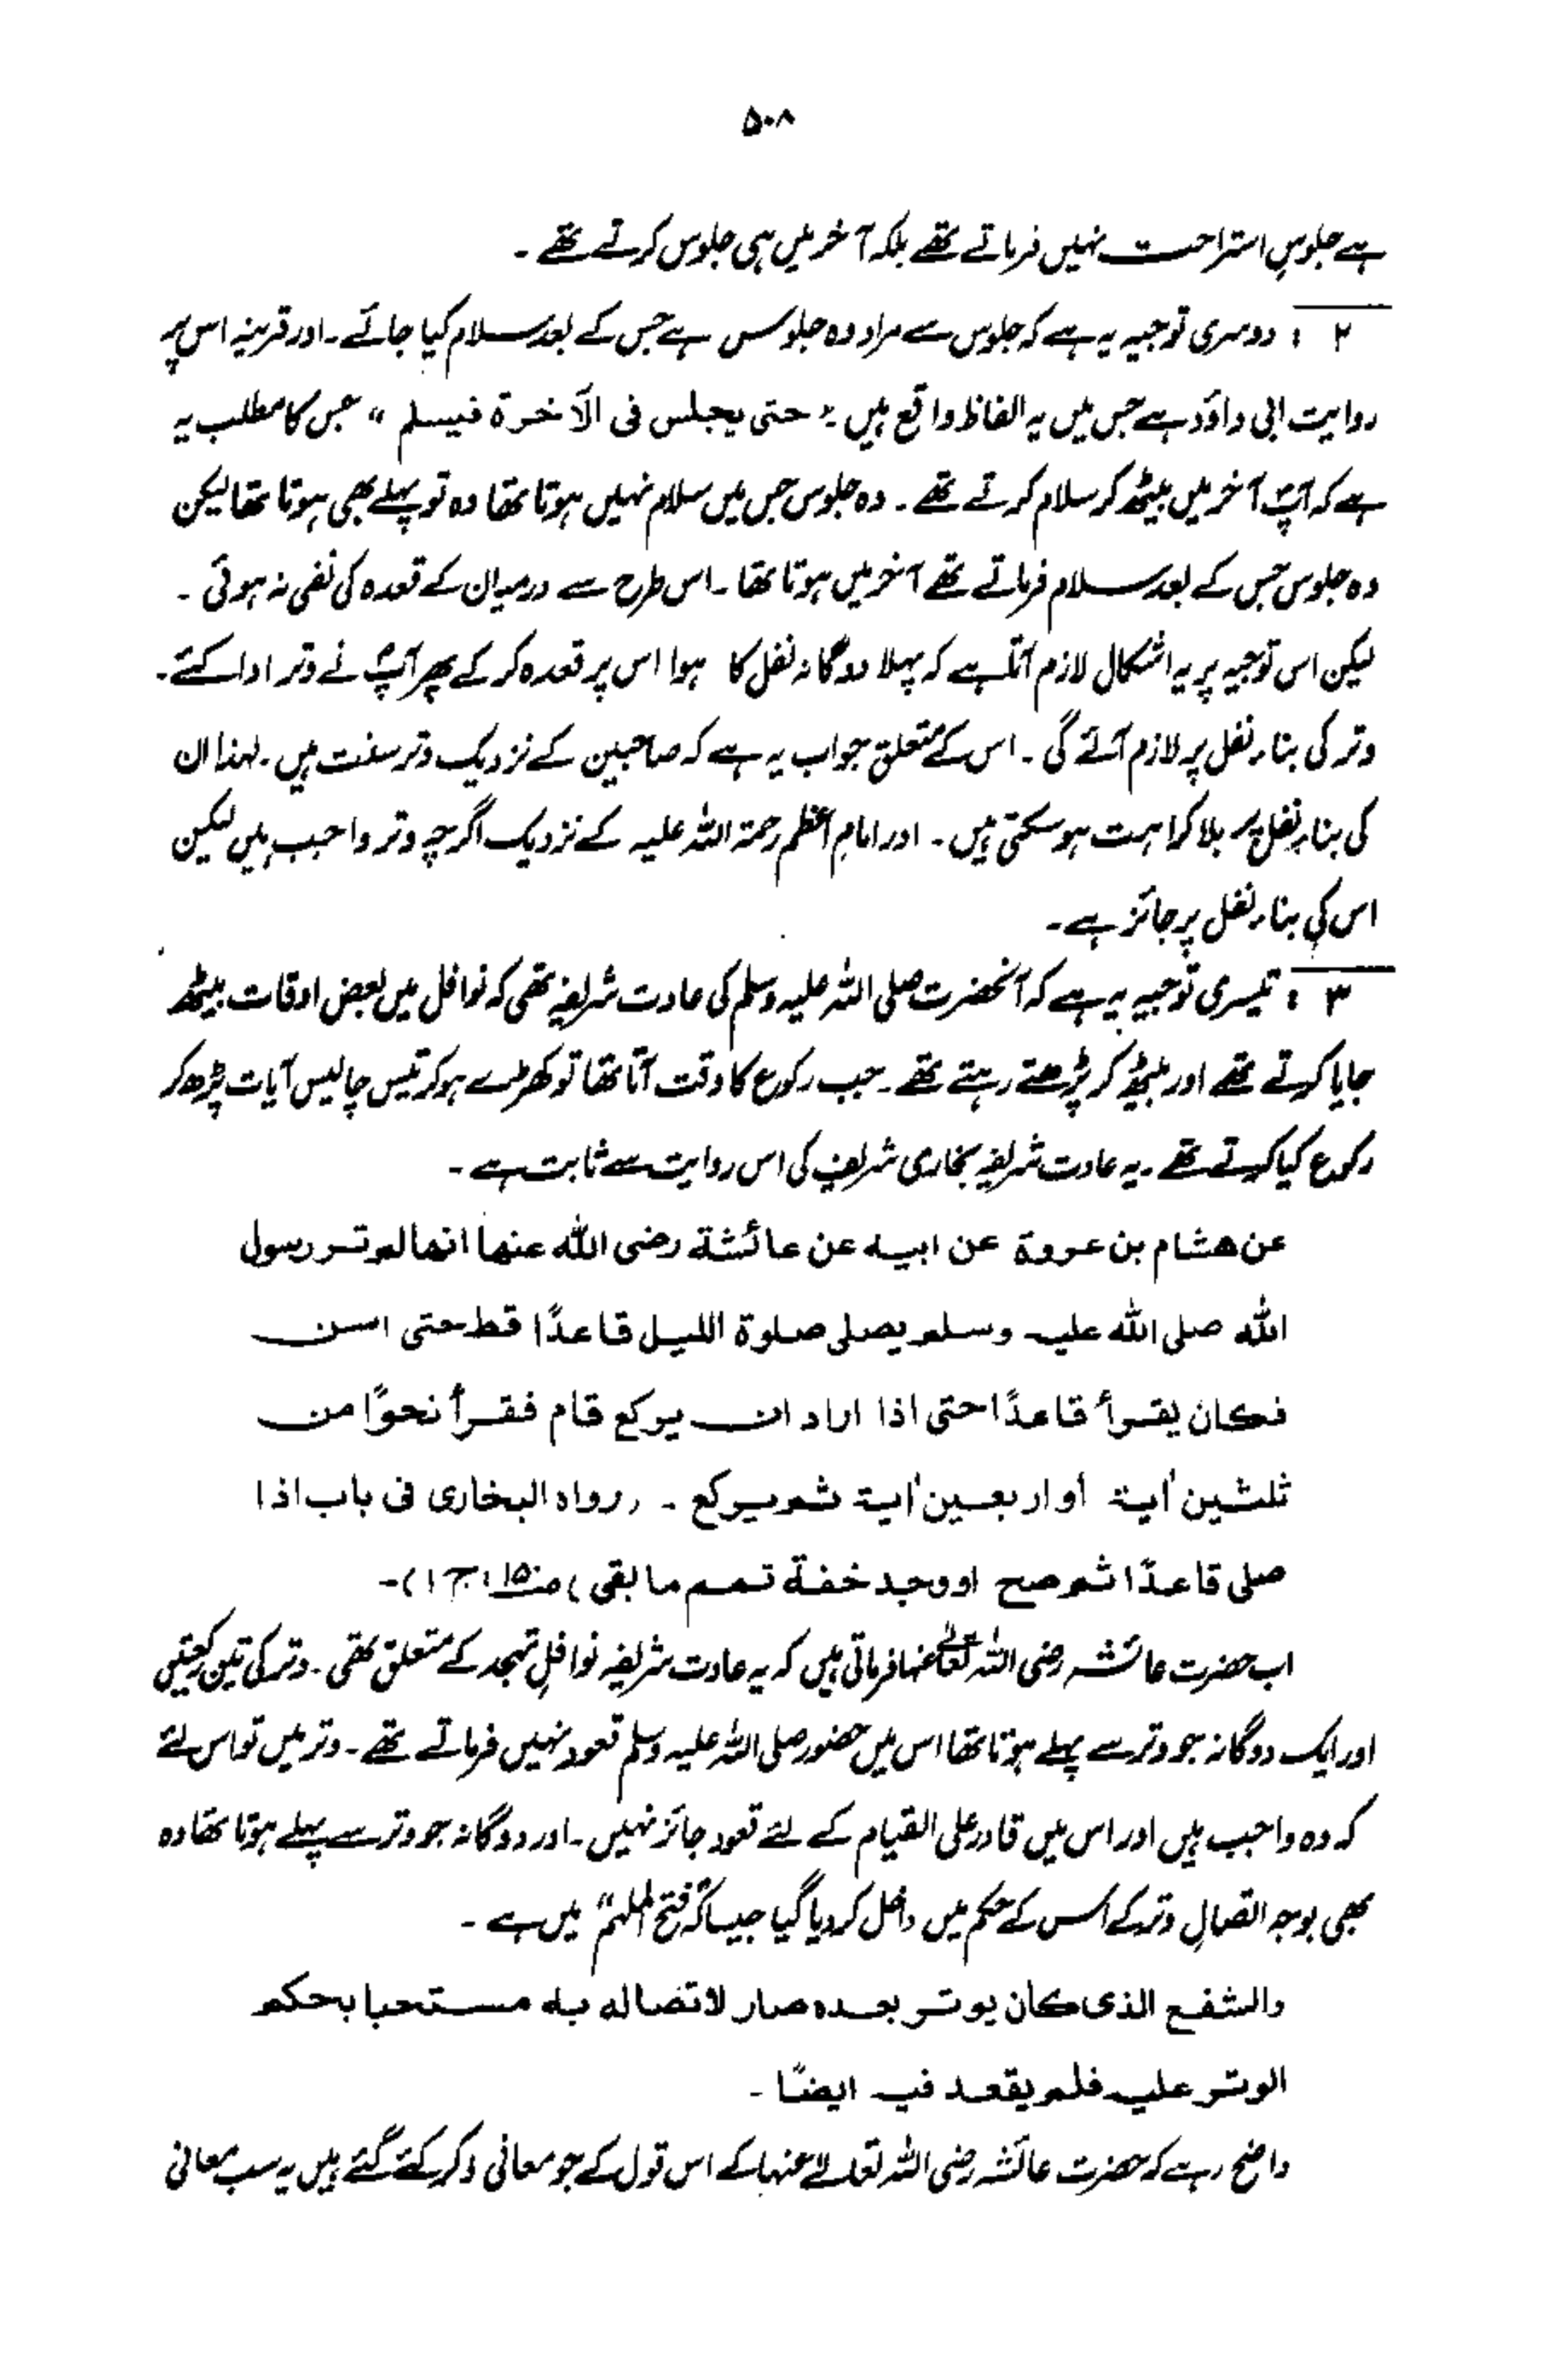 ۵۰۸
ہے جلوسِ استراحت نہیں فرماتے تھے بلکہ آخر میں ہی جلوس کرتے تھے ۔
۲ : دوسری توجیہ یہ ہے کہ جلوس سے مراد وہ جلوس ہے جس کے بعد سلام کیا جائے ۔ اور قرینہ اس پر
روایت ابی داؤد ہے جس میں یہ الفاظ واقع ہیں : حتی یجلس فی الآخرة فیسلم “ جس کا مطلب یہ
ہے کہ آپؐ آخر میں بیٹھ کر سلام کرتے تھے ۔ وہ جلوس جس میں سلام نہیں ہوتا تھا وہ تو پہلے بھی ہوتا تھا لیکن
وہ جلوس جس کے بعد سلام فرماتے تھے آخر میں ہوتا تھا ۔ اس طرح سے درمیان کے قعدہ کی نفی نہ ہوئی ۔
لیکن اس توجیہ پر یہ اشکال لازم آتا ہے کہ پہلا دوگانہ نفل کا ہوا اس پر قعدہ کر کے پھر آپؐ نے وتر ادا کئے ۔
وتر کی بناء نفل پر لازم آئے گی ۔ اس کے متعلق جواب یہ ہے کہ صاحبین کے نزدیک وتر سنت ہیں ۔ لہذا ان
کی بناء نفل پر بلا کراہت ہو سکتی ہیں ۔ اور امام اعظم رحمۃ اللہ علیہ کے نزدیک اگرچہ وتر واجب ہیں لیکن
اس کی بناء نفل پر جائز ہے ۔
۳ : تیسری توجیہ یہ ہے کہ آنحضرت صلی اللہ علیہ وسلم کی عادت شریفہ تھی کہ نوافل میں بعض اوقات بیٹھ
جایا کرتے تھے اور بیٹھ کر پڑھتے رہتے تھے ۔ جب رکوع کا وقت آتا تھا تو کھڑے ہو کر تیس چالیس آیات پڑھ کر
رکوع کیا کرتے تھے ۔ یہ عادت شریفہ بخاری شریف کی اس روایت سے ثابت ہے ۔
عن هشام بن عروة عن ابیه عن عائشة رضی الله عنها انها لم تر رسول
الله صلی الله علیه وسلم یصلی صلوة اللیل قاعدًا قط حتی اسن
فکان یقرأ قاعدًا حتی اذا اراد ان یرکع قام فقرأ نحوًا من
ثلثین اٰیة أو اربعین اٰیة ثم یرکع ۔ (رواه البخاری فی باب اذا
صلی قاعدًا ثم صح او وجد خفة تمم ما بقی) ص۱۵۰ ج۱)-
اب حضرت عائشہ رضی اللہ تعالیٰ عنہا فرماتی ہیں کہ یہ عادت شریفہ نوافلِ تہجد کے متعلق تھی ۔ وتر کی تین رکعتیں
اور ایک دوگانہ جو وتر سے پہلے ہوتا تھا اس میں حضور صلی اللہ علیہ وسلم قعود نہیں فرماتے تھے ۔ وتر میں تو اس لئے
کہ وہ واجب ہیں اور اس میں قادر علی القیام کے لئے قعود جائز نہیں ۔ اور دوگانہ جو وتر سے پہلے ہوتا تھا وہ
بھی بوجہ اتصالِ وتر کے اس کے حکم میں داخل کر دیا گیا جیسا کہ ”فتح الملہم“ میں ہے ۔
والشفع الذی کان یوتر بعده صار لاتصاله به مستحبا بحکم
الوتر علیه فلم یقعد فیه ایضًا ۔
واضح رہے کہ حضرت عائشہ رضی اللہ تعالےٰ عنہا کے اس قول کے جو معانی ذکر کئے گئے ہیں یہ سب معانی